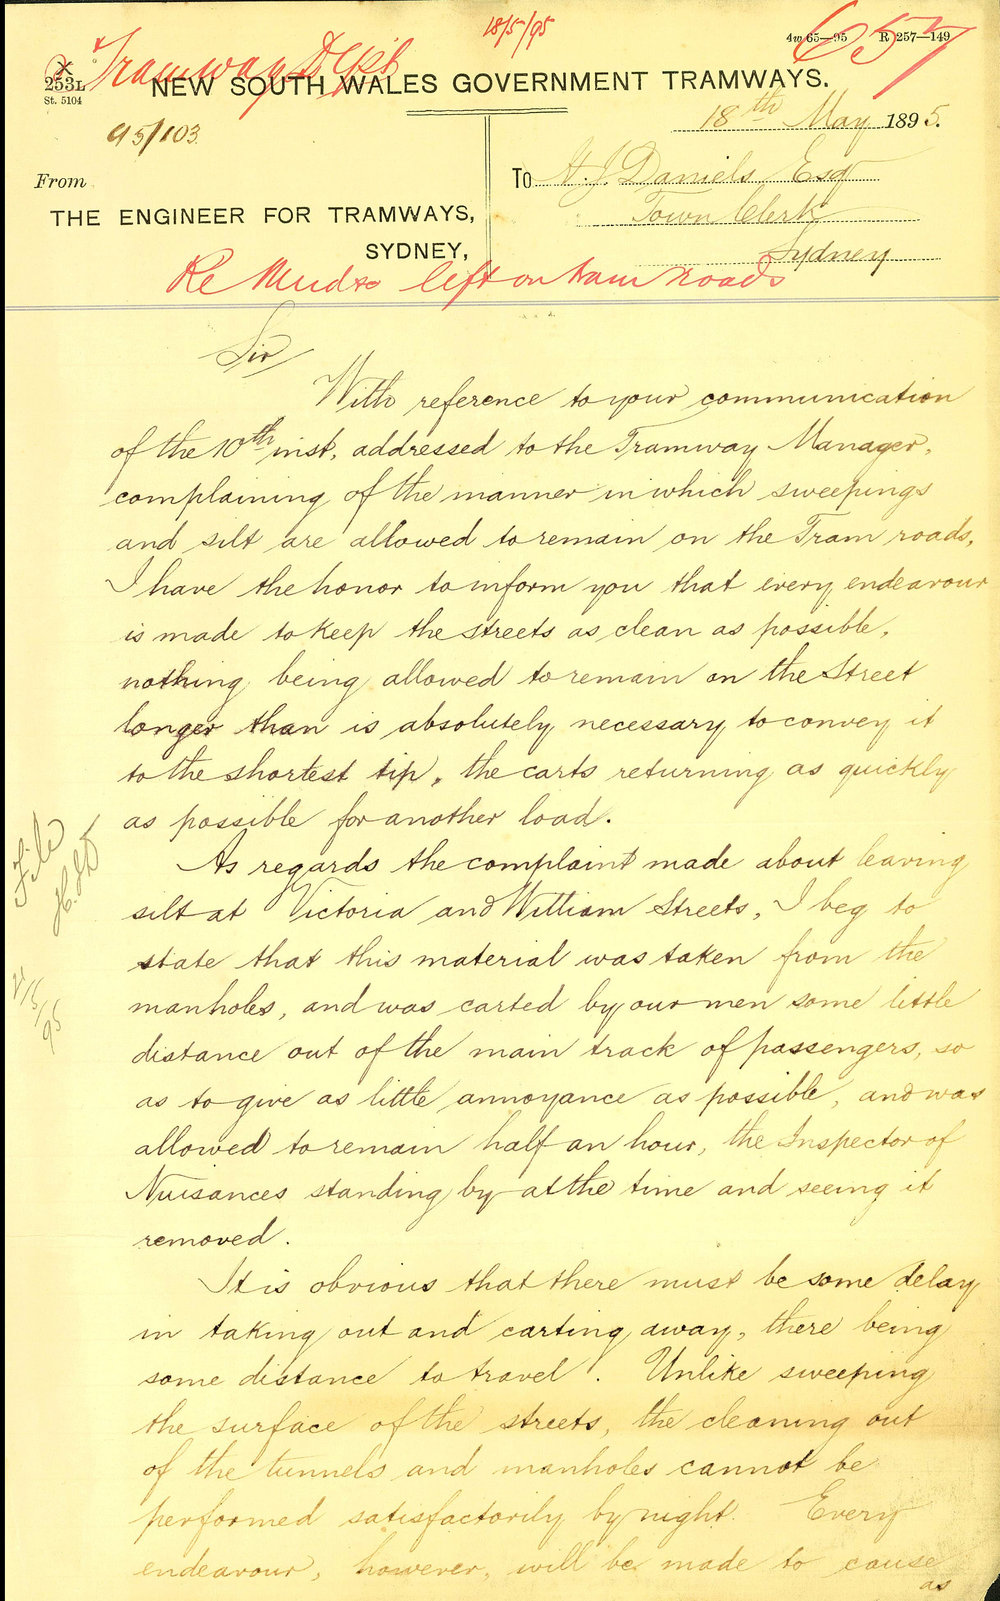 18/5/95
Tramway Dept
657
4w 65—95 R 257—149
253L
St. 5104
NEW SOUTH WALES GOVERNMENT TRAMWAYS.
95/103
18th May 1895.
From
THE ENGINEER FOR TRAMWAYS,
SYDNEY,
To H. J. Daniels, Esq
Town Clerk
Sydney
Re Mud &c left on tram roads
Sir
With reference to your communication
of the 10th inst. addressed to the Tramway Manager,
complaining of the manner in which sweepings
and silt are allowed to remain on the Tram roads,
I have the honor to inform you that every endeavour
is made to keep the streets as clean as possible,
nothing being allowed to remain on the Street
longer than is absolutely necessary to convey it
to the shortest tip, the carts returning as quickly
as possible for another load.
As regards the complaint made about leaving
silt at Victoria and William Streets, I beg to
state that this material was taken from the
manholes, and was carted by our men some little
distance out of the main track of passengers, so
as to give as little annoyance as possible, and was
allowed to remain half an hour, the Inspector of
Nuisances standing by at the time and seeing it
removed.
It is obvious that there must be some delay
in taking out and carting away, there being
some distance to travel. Unlike sweeping
the surface of the streets, the cleaning out
of the tunnels and manholes cannot be
performed satisfactorily by night. Every
endeavour, however, will be made to cause
as
File
/5/95